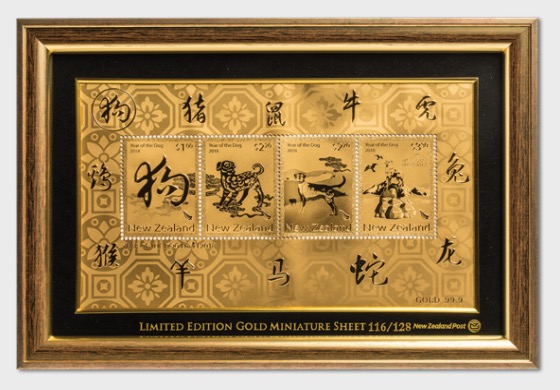 狗 猪 鼠 牛 虎
鸡
Year of the Dog
2018
狗
New Zealand
Year of the Dog
2018
New Zealand
Year of the Dog
2018
New Zealand
Year of the Dog
2018
New Zealand
兔
猴 羊 马 蛇 龙
GOLD 99.9
LIMITED EDITION GOLD MINIATURE SHEET 116/128 New Zealand Post